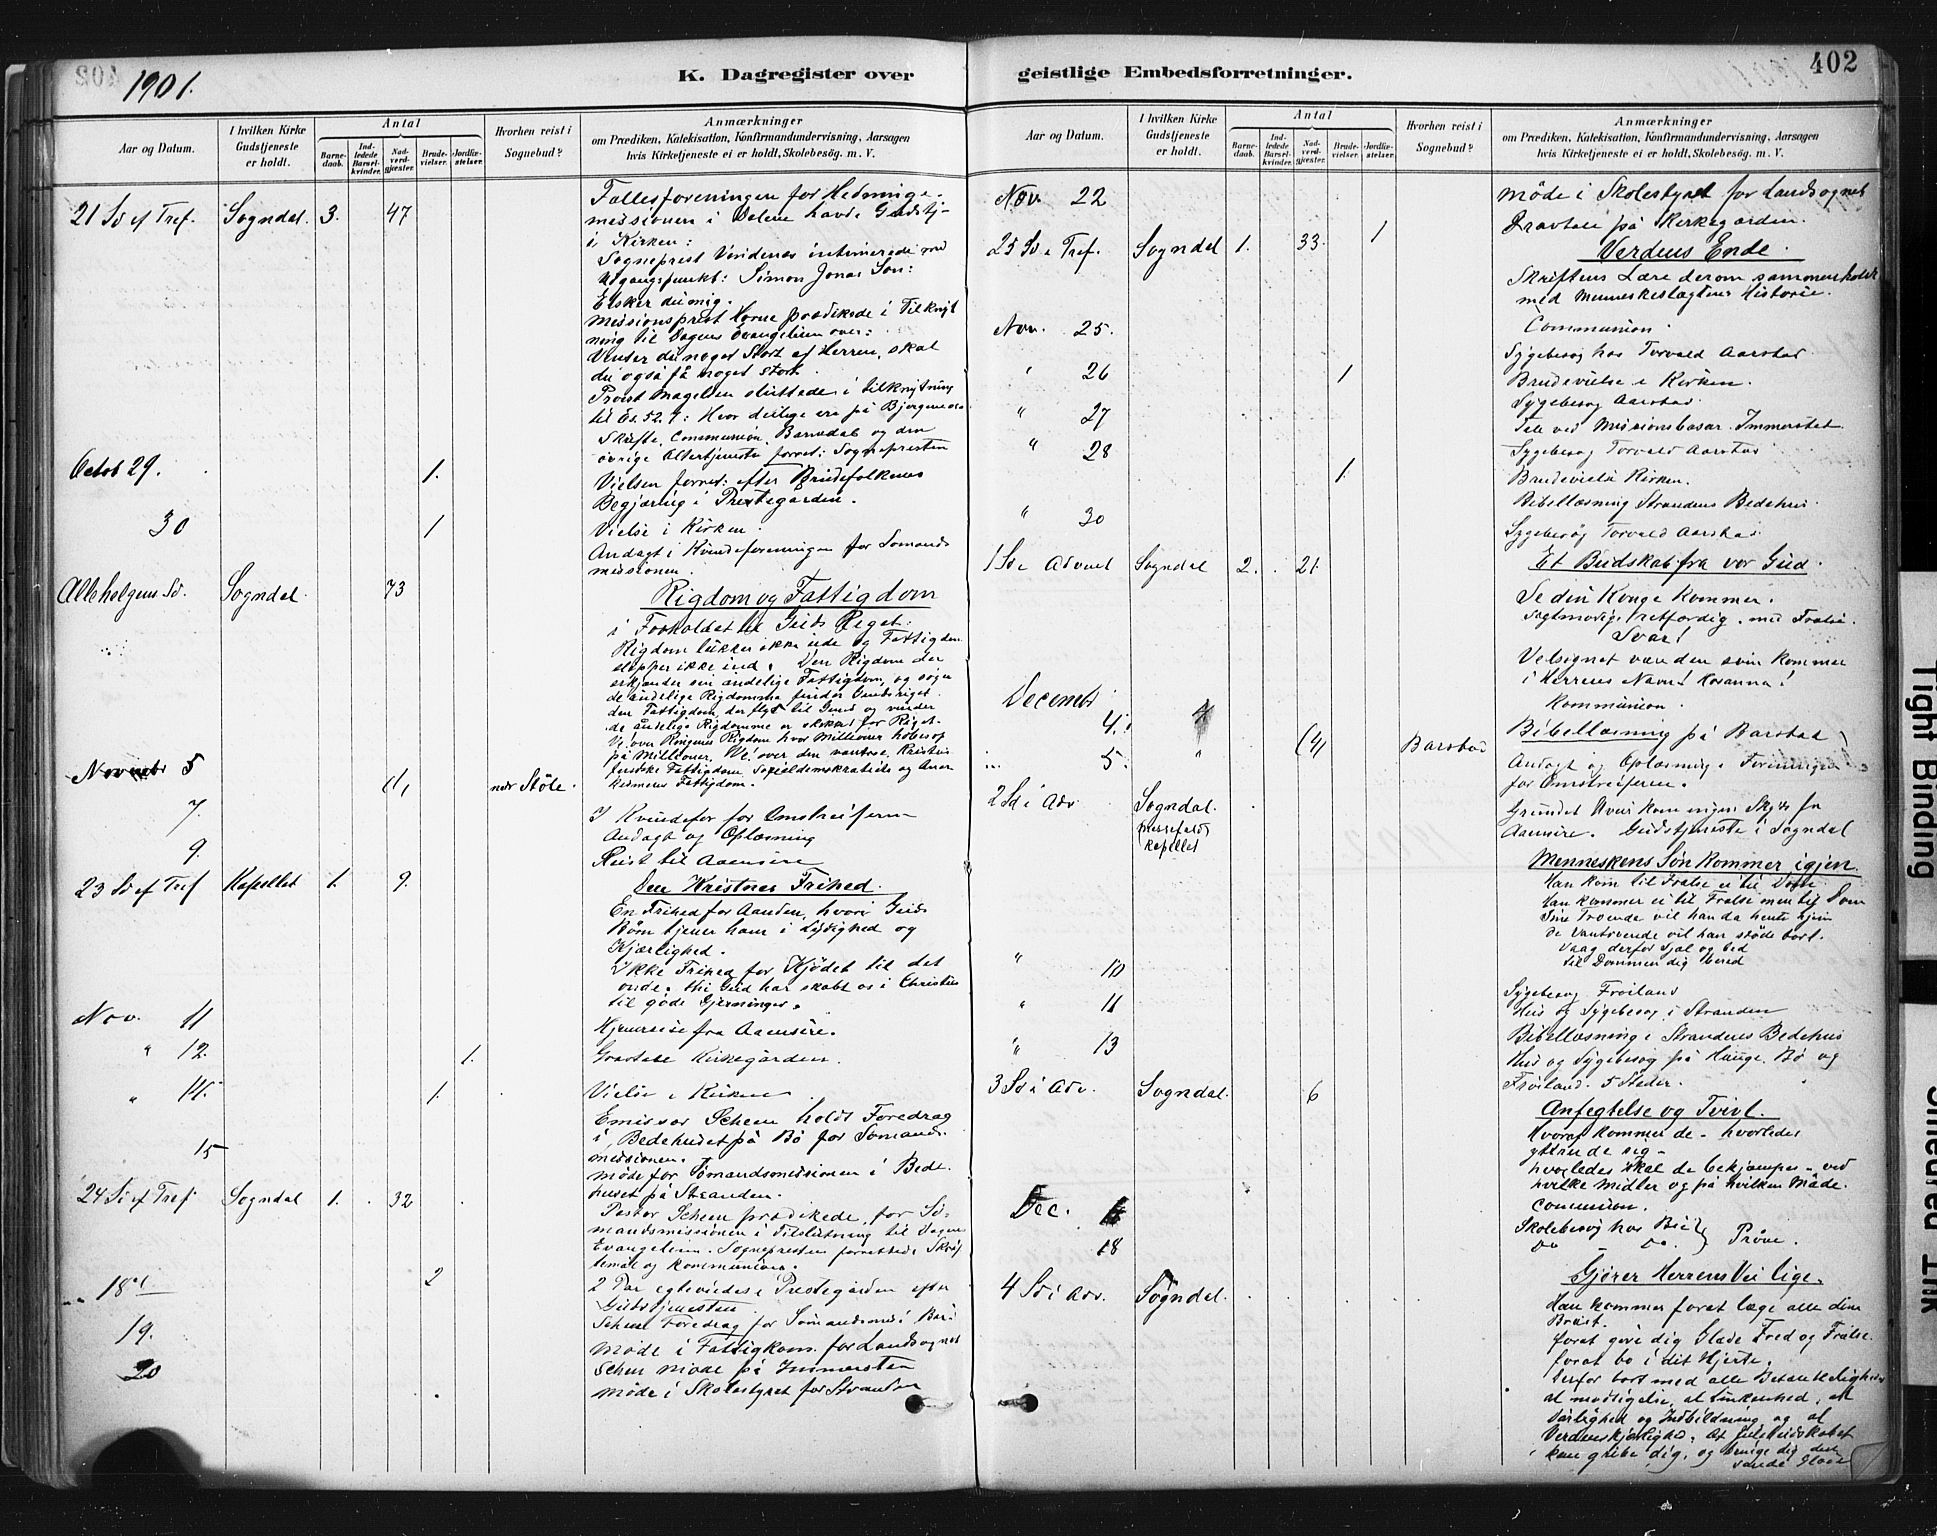 1901.
K. Dagregister over
geistlige Embedsforretninger.
402
Aar og Datum.
I hvilken Kirke Gudstjeneste er holdt.
Antal
Barnedaab.
Indledede Barselkvinder.
Nadverdgjester.
Brudevielser.
Jordfæstelser.
Hvorhen reist i Sognebud?
Anmærkninger
om Prædiken, Katekisation, Konfirmandundervisning, Aarsagen
hvis Kirketjeneste ei er holdt, Skolebesög. m. V.
21 Sd ef Tref. Sogndal. 3. 47
Fællesforeningen for Hedninge-
missionen i Dalene havde Gudstj-
i Kirken:
Sogneprest Vindenes intimerede med
Udgangspunkt: Simon Jonas Søn:
Elsker du mig.
Missionsprest Horne prædikede i Tilknyt
ning til Dagens Evangelium over:
Venter du noget Stort af Herren, skal
du også få noget stort.
Provst Magelsen sluttede i tilknytning
til Es. 52. 7: Hvor deilige ere på Bjergene
Skrifte, Communion, Barnedab og den
øvrige Altertjeneste forret: Sognepresten
Octob 29. 1.
Vielsen forret: efter Brudefolkenes
Begjæring i Prestegården.
30 1
Vielse i Kirken.
Andagt i Kvindeforeningen for Sømands
missionen.
Allehelgens Sd. Sogndal. 73
Rigdom og Fattigdom
i Forholdet til Guds Riget:
Rigdom lukker ikke ude og Fattigdom
slipper ikke ind. Den Rigdom der
erkjender sin åndelige Fattigdom, og søger
de åndelige Rigdomme finder Gudsriget.
den Fattigdom, der flyr til Gud og vinder
de åndelige Rigdomme er skikket for Riget.
Ve! over Kongenes Rigdom hvor Millioner hobes op
på Millioner. Ve! over den vantroe, Kristus
fiendske Fattigdom, Socialdemokratiets og Anar
kismens Fattigdom.
Novembr 5 (1) nedr Støle.
7.
I Kvindefor for Omstreiferne
Andagt og Oplæsning
9.
Reist til Aaensire
23 Sd ef Tref Kapellet 1. 9.
Den Kristnes Frihed.
En Frihed for Aanden, hvori Guds
Børn tjener ham i Lydighed og
Kjærlighed.
Ikke Frihed for Kjødet til det
onde. Thi Gud har skabt os i Christus
til gode Gjerninger.
Nov. 11
Hjemreise fra Aaensire.
" 12. 1.
Gravtale Kirkegården.
" 14. 1.
Vielse i Kirken
Emissær Scheen holdt Foredrag
i Bedehuset på Bø for Sømands
missionen.
15
Møde for Sømandsmissionen i Bede
huset på Stranden.
24 Sd ef Tref. Sogndal 1. 32
Pastor Scheen prædikede for Sø-
mandsmissionen i Tilslutning til Dagens
Evangelium. Sognepresten forrettede Skrif
temål og Kommunion.
18 2
2 Par egteviedes i Prestegården efter
Gudstjenesten
Scheens Foredrag for Sømandsmis i
19.
Møde i Fattigkom. for Landsognet
Scheen Møde på Immerstein
20
Møde i Skolestyret for Stranden
Aar og Datum.
I hvilken Kirke Gudstjeneste er holdt.
Antal
Barnedaab.
Indledede Barselkvinder.
Nadverdgjester.
Brudevielser.
Jordfæstelser.
Hvorhen reist i Sognebud?
Anmærkninger
om Prædiken, Katekisation, Konfirmandundervisning, Aarsagen
hvis Kirketjeneste ei er holdt, Skolebesög. m. V.
Nov 22
Møde i Skolestyret for Landsognet
Gravtale på Kirkegården.
25 Sd e Tref. Sogndal 1. 33. 1
Verdens Ende
Skriftens Lære derom sammenholdt
med Menneskeslægtens Historie.
Communion.
Nov. 25.
Sygebesøg hos Torvald Aarstad.
" 26 1
Brudevielse i Kirken.
Sygebesøg Aarstad.
" 27
Tale ved Missionsbasar. Immerstet.
" 28
Sygebesøg Torvald Aarstad
1.
Brudevielse Kirken.
Bibellæsning Strandens Bedehus
" 30
Sygebesøg Torvald Aarstad.
1 Sd e Advent Sogndal 2. 21.
Et Budskab fra vor Gud.
Se din Konge kommer.
Sagtmodig, retfærdig, med Frelse.
Svar!
Velsignet være den som kommer
i Herrens Navn! Hosanna!
Kommunion.
Decembr 4.
Bibellæsning på Barstad
5. " (4) Barstad
Andagt og Oplæsning i Foreningen
for Omstreiferne.
2 Sd i Adv Sogndal.
kapellet
Aaensire. Gudstjeneste i Sogndal
Menneskens Søn kommer igjen.
Han kom til Frelse ei til Dom
Han kommer ei til Frelse men til Dom
Sine Troende vil han da hente hjem
de Vantroende vil han støde bort.
Vaag derfor Sjæl og bed
Til Dommen dig bered
" 10
Sygebesøg Frøiland
" 11
Hus og Sygebesøg i Stranden
Bibellæsning i Strandens Bedehus
" 13
Hus og Sygebesøg på Hauge, Bø og
Frøiland. 5 Steder.
3 Sd i Adv. Sogndal. 6
Anfegtelse og Tvivl.
Hvoraf kommer de - hvorledes
yttrer de sig -
hvorledes skal de bekjæmpes - ved
hvilke Midler og på hvilken Måde.
Communion.
Dec.
Skolebesøg hos
Prøve.
18
Do Do.
4 Sd i Adv. Sogndal.
Gjører Herrens Vei lige.
Han kommer forat læge alle dine
Brøst.
forat give dig Glæde Fred og Frelse.
forat bo i dit Hjerte.
Derfor bort med alle Betænkeligheder
al modtigelse, al Sikkerhed, al
Særlighed og Indbildning og al
Verdenskjærlighed. At Julebudskabet
kan gribe dig, og bringe dig den
sande Glæde
Tight Binding